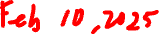 Feb 10, 2025